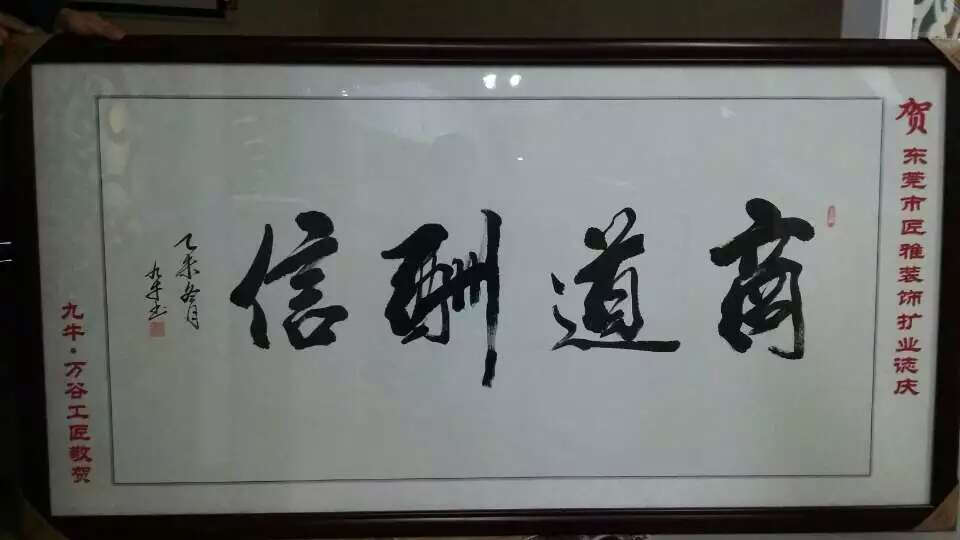 贺
东莞市匠雅装饰扩业志庆
商道酬信
乙未冬月
九牛书
九牛·万谷工匠敬贺